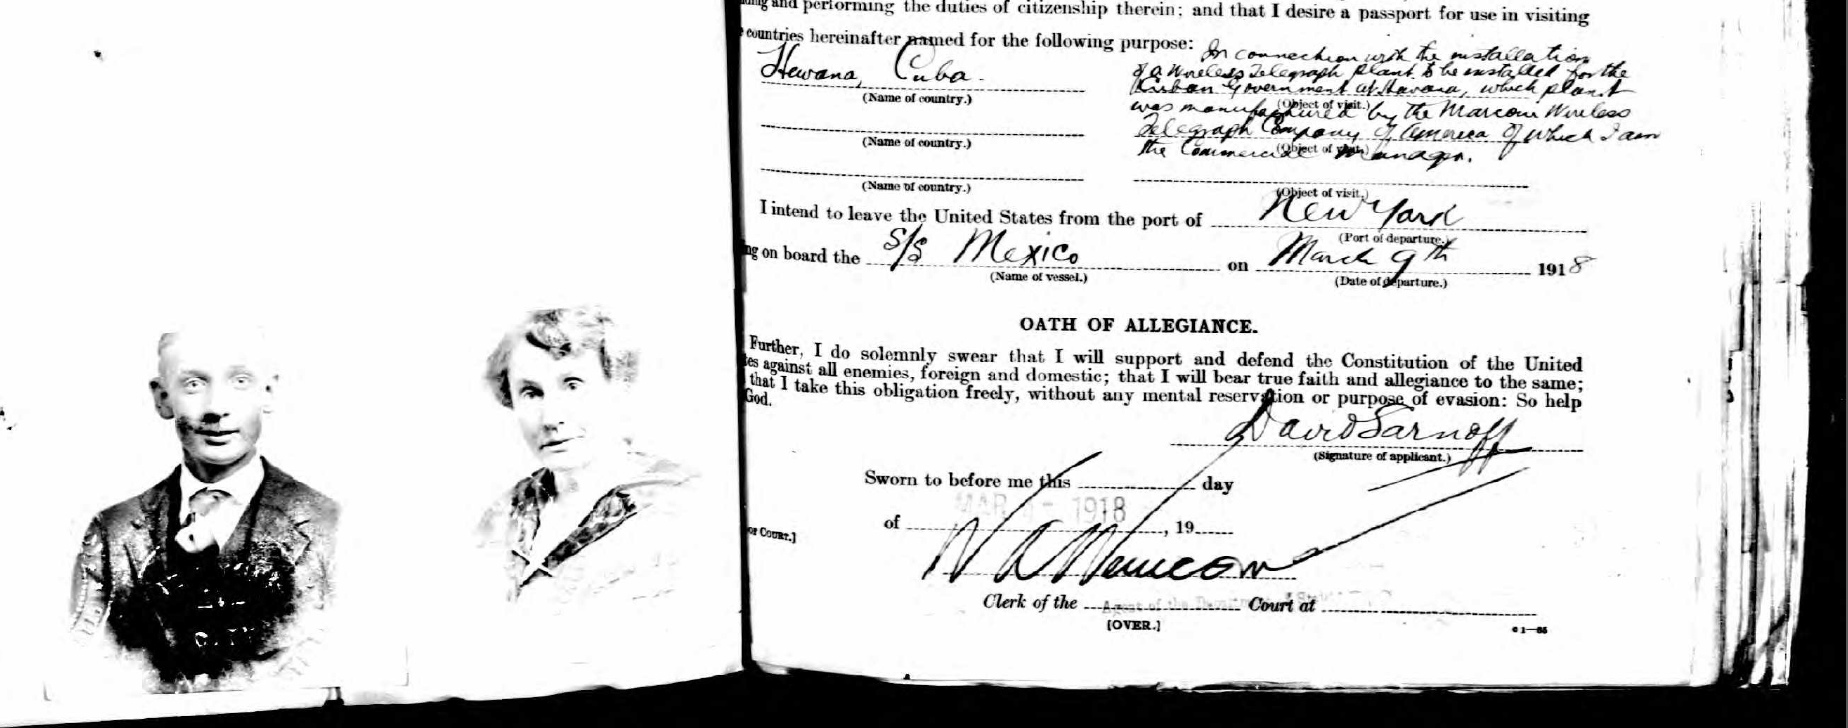 and performing the duties of citizenship therein; and that I desire a passport for use in visiting
countries hereinafter named for the following purpose:
In connection with the installation
Hawana, Cuba.
of a Wireless Telegraph plant to be installed for the
(Name of country.)
Kuban Government at Havana, which plant
(Object of visit.)
was manufactured by the Marconi Wireless
Telegraph Company of America of which I am
(Name of country.)
(Object of visit.)
the Commercial Manager.
(Name of country.)
(Object of visit.)
I intend to leave the United States from the port of New York
(Port of departure.)
on board the S/S Mexico on March 9th 1918
(Name of vessel.)
(Date of departure.)
OATH OF ALLEGIANCE.
Further, I do solemnly swear that I will support and defend the Constitution of the United
es against all enemies, foreign and domestic; that I will bear true faith and allegiance to the same;
that I take this obligation freely, without any mental reservation or purpose of evasion: So help
God.
David Sarnoff
(Signature of applicant.)
Sworn to before me this day
MAR 1918
of , 19
or COURT.]
Clerk of the Agent of the Department of State Court at
[OVER.]